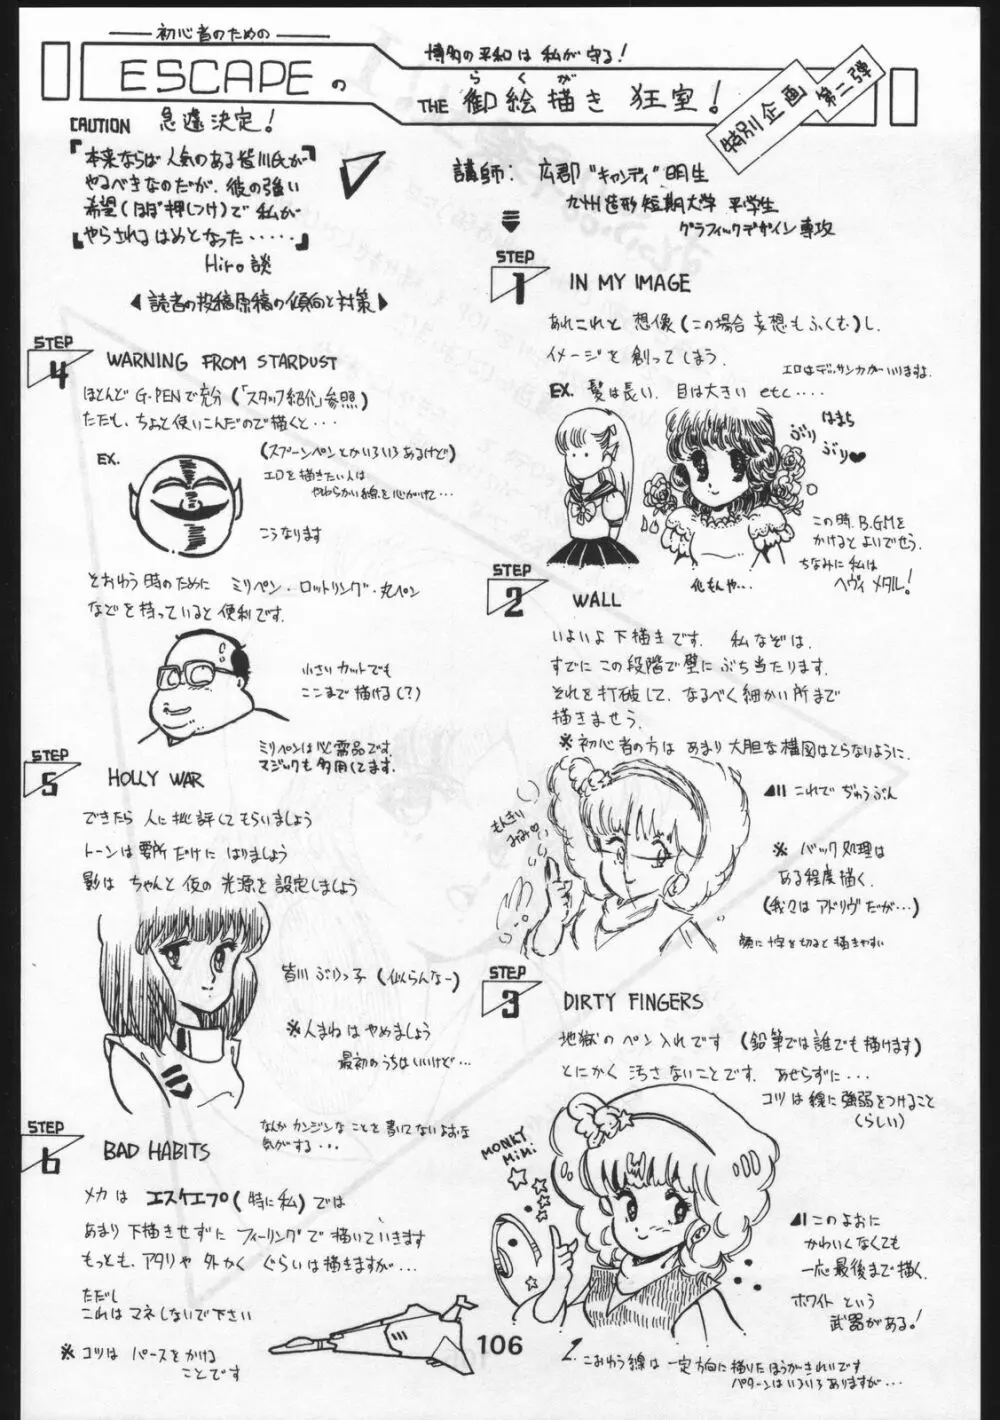 初心者のための
ESCAPEの
博多の平和は私が守る!
らくが
THE 御絵描き 狂室!
特別企画 第二弾
CAUTION 急遽決定!
『本来ならば人気のある皆川氏が
やるべきなのだが、彼の強い
希望(ほぼ押しつけ)で私が
やらされるはめとなった・・・・・』
Hiro談
◀読者の投稿原稿の傾向と対策▶
講師: 広郡"キャンディ"明生
九州造形短期大学 平学生
グラフィックデザイン専攻
STEP
1 IN MY IMAGE
あれこれと想像(この場合妄想もふくむ)し、
イメージを創ってしまう。
エロはデッサン力がいりますね。
EX. 髪は長い、目は大きい etc・・・・
はまち
ぶり
ぶり♥
この時、B.G.Mを
かけるとよいでせう。
ちなみに私は
ヘヴィメタル!
化もんや・・・
STEP
2 WALL
いよいよ下描きです。私なぞは、
すでにこの段階で壁にぶち当たります。
それを打破して、なるべく細かい所まで
描きませう。
※初心者の方はあまり大胆な構図はとらないように。
これでぢゅうぶん
もんきり
みみ♡
※バック処理は
ある程度描く。
(我々はアドリヴだが・・・)
顔に十字を切ると描きやすい
STEP
3 DIRTY FINGERS
地獄のペン入れです(鉛筆では誰でも描けます)
とにかく汚さないことです。あせらずに・・・
コツは線に強弱をつけること
(らしい)
MONKY
MiMi
このよおに
かわいくなくても
一応最後まで描く。
ホワイトという
武器がある!
こおゆう線は一定方向に描いたほうがきれいです
パターンはいろいろありますが・・・
STEP
4 WARNING FROM STARDUST
ほとんどG-PENで充分(「スタッフ紹介」参照)
ただし、ちょっと使いこんだので描くと・・・
EX.
(スプーンペンとかいろいろあるけど)
エロを描きたい人は
やわらかい線を心がけて・・・
こうなります
とおゆう時のために ミリペン・ロットリング・丸ペン
などを持っていると便利です。
小さいカットでも
ここまで描ける(?)
ミリペンは必需品です。
マジックも多用してます。
STEP
5 HOLLY WAR
できたら人に批評してもらいましょう
トーンは要所だけにはりましょう
影はちゃんと仮の光源を設定しましょう
皆川ぶりっ子(似らんなー)
※人まねはやめましょう
最初のうちはいいけど・・・
STEP
6 BAD HABITS
なんかカンジンなことを書いてないよおな
気がする・・・
メカはエスケエプ(特に私)では
あまり下描きせずにフィーリングで描いていきます
もっとも、アタリや外かくぐらいは描きますが・・・
ただし
これはマネしないで下さい
※コツはパースをかける
ことです
106